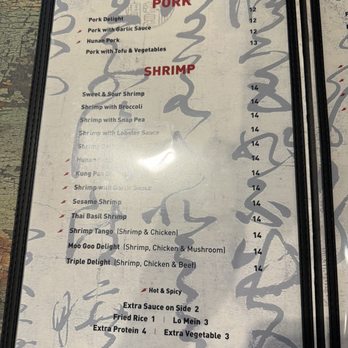 PORK
Pork Delight 12
Pork with Garlic Sauce 12
Hunan Pork 12
Pork with Tofu & Vegetables 13
SHRIMP
Sweet & Sour Shrimp 14
Shrimp with Broccoli 14
Shrimp with Snap Pea 14
Shrimp with Lobster Sauce 14
Shrimp 14
Hunan 14
Kung Pao 14
Shrimp with Garlic Sauce 14
Sesame Shrimp 14
Thai Basil Shrimp 14
Shrimp Tango (Shrimp & Chicken) 14
Moo Goo Delight (Shrimp, Chicken & Mushroom) 14
Triple Delight (Shrimp, Chicken & Beef) 14
Hot & Spicy
Extra Sauce on Side 2
Fried Rice 1 | Lo Mein 3
Extra Protein 4 | Extra Vegetable 3